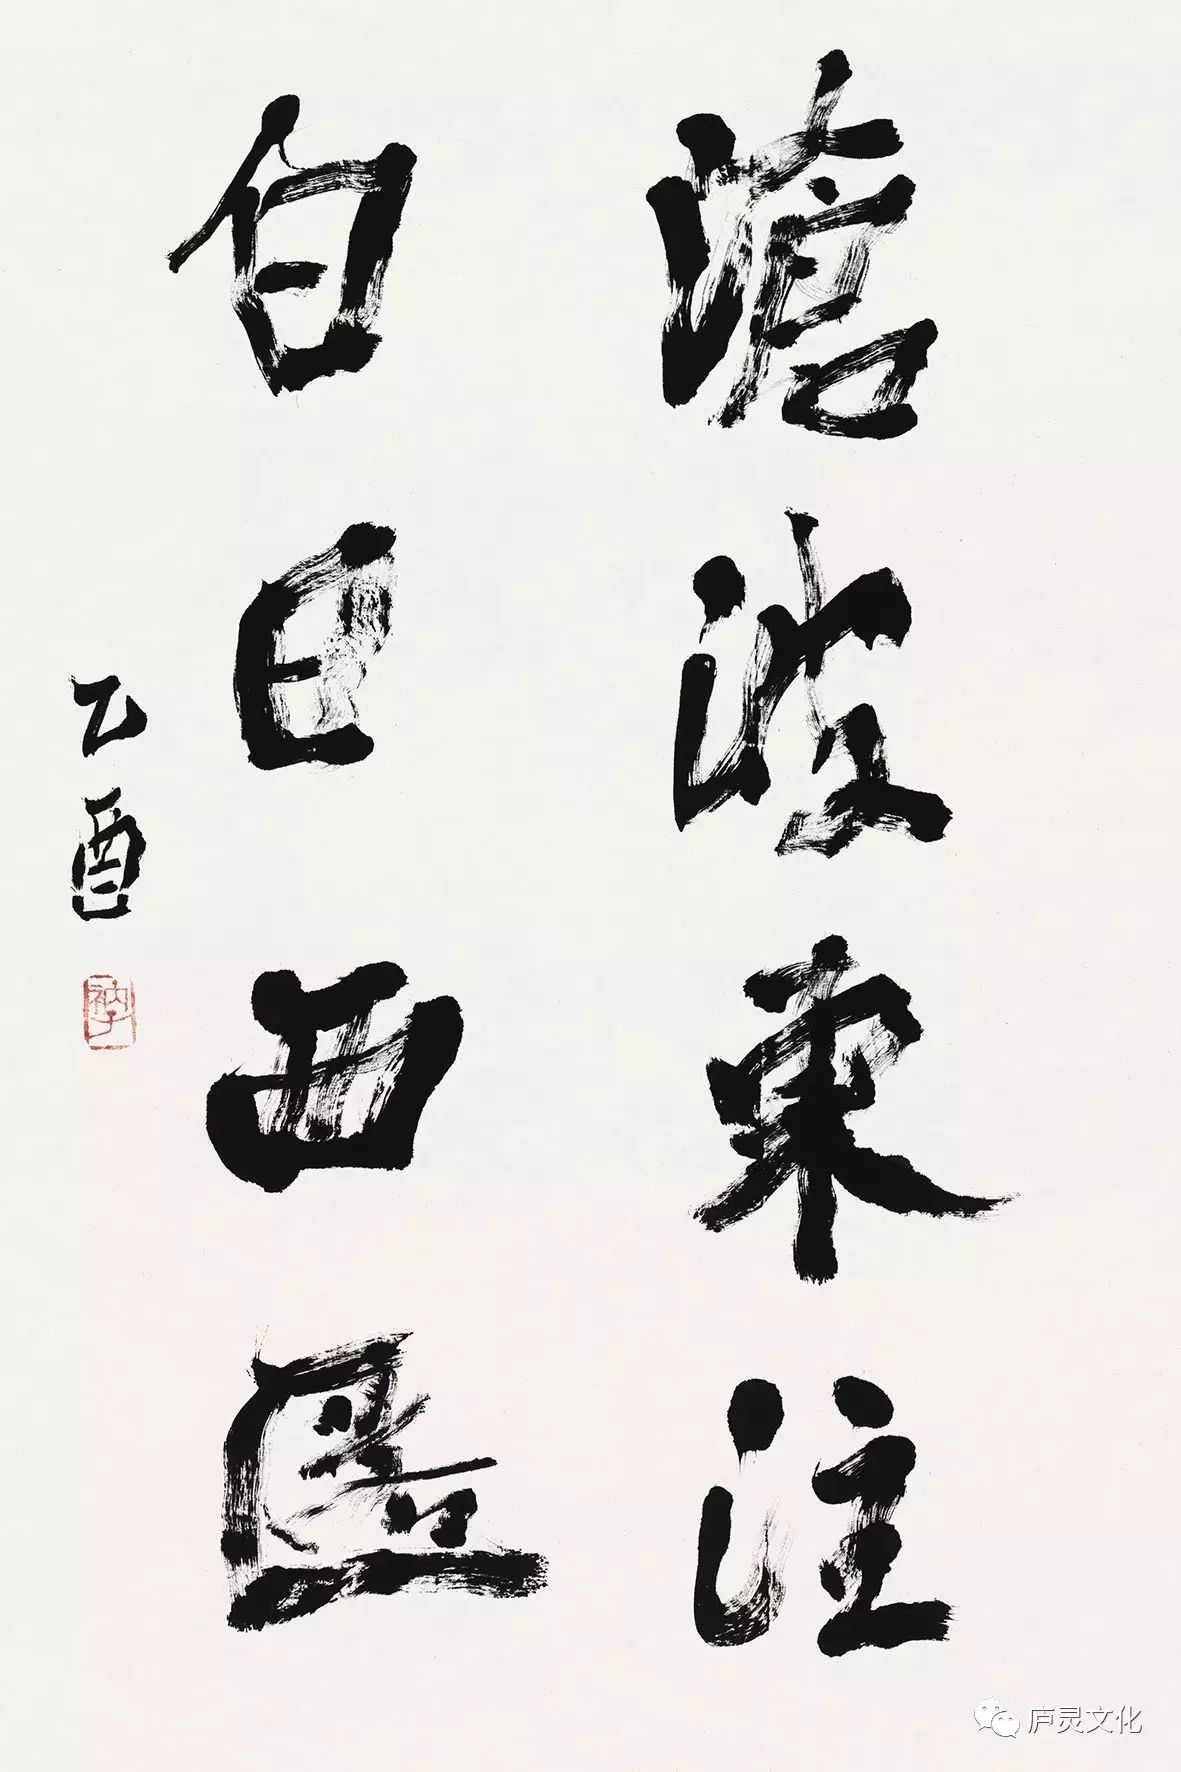 滄波東注
白日西匿
乙酉
庐灵文化